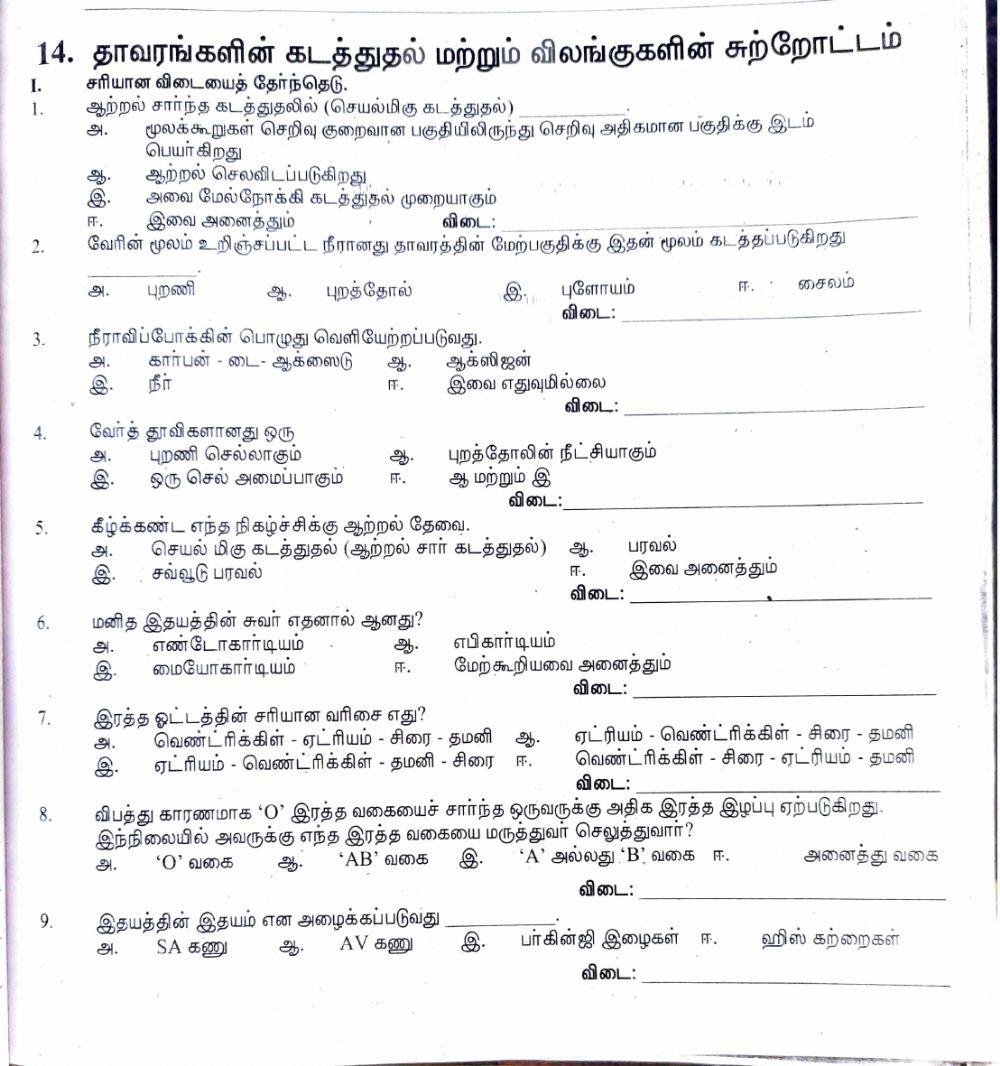 14. தாவரங்களின் கடத்துதல் மற்றும் விலங்குகளின் சுற்றோட்டம்
I. சரியான விடையைத் தேர்ந்தெடு.
1. ஆற்றல் சார்ந்த கடத்துதலில் (செயல்மிகு கடத்துதல்) ____________.
அ. மூலக்கூறுகள் செறிவு குறைவான பகுதியிலிருந்து செறிவு அதிகமான பகுதிக்கு இடம்
பெயர்கிறது
ஆ. ஆற்றல் செலவிடப்படுகிறது
இ. அவை மேல்நோக்கி கடத்துதல் முறையாகும்
ஈ. இவை அனைத்தும் விடை:
2. வேரின் மூலம் உறிஞ்சப்பட்ட நீரானது தாவரத்தின் மேற்பகுதிக்கு இதன் மூலம் கடத்தப்படுகிறது
____________.
அ. புறணி ஆ. புறத்தோல் இ. புளோயம் ஈ. சைலம்
விடை:
3. நீராவிப்போக்கின் பொழுது வெளியேற்றப்படுவது.
அ. கார்பன் - டை- ஆக்ஸைடு ஆ. ஆக்ஸிஜன்
இ. நீர் ஈ. இவை எதுவுமில்லை
விடை:
4. வேர்த் தூவிகளானது ஒரு
அ. புறணி செல்லாகும் ஆ. புறத்தோலின் நீட்சியாகும்
இ. ஒரு செல் அமைப்பாகும் ஈ. ஆ மற்றும் இ
விடை:
5. கீழ்க்கண்ட எந்த நிகழ்ச்சிக்கு ஆற்றல் தேவை.
அ. செயல் மிகு கடத்துதல் (ஆற்றல் சார் கடத்துதல்) ஆ. பரவல்
இ. சவ்வூடு பரவல் ஈ. இவை அனைத்தும்
விடை:
6. மனித இதயத்தின் சுவர் எதனால் ஆனது?
அ. எண்டோகார்டியம் ஆ. எபிகார்டியம்
இ. மையோகார்டியம் ஈ. மேற்கூறியவை அனைத்தும்
விடை:
7. இரத்த ஓட்டத்தின் சரியான வரிசை எது?
அ. வெண்ட்ரிக்கிள் - ஏட்ரியம் - சிரை - தமனி ஆ. ஏட்ரியம் - வெண்ட்ரிக்கிள் - சிரை - தமனி
இ. ஏட்ரியம் - வெண்ட்ரிக்கிள் - தமனி - சிரை ஈ. வெண்ட்ரிக்கிள் - சிரை - ஏட்ரியம் - தமனி
விடை:
8. விபத்து காரணமாக ‘O’ இரத்த வகையைச் சார்ந்த ஒருவருக்கு அதிக இரத்த இழப்பு ஏற்படுகிறது.
இந்நிலையில் அவருக்கு எந்த இரத்த வகையை மருத்துவர் செலுத்துவார்?
அ. ‘O’ வகை ஆ. ‘AB’ வகை இ. ‘A’ அல்லது ‘B’ வகை ஈ. அனைத்து வகை
விடை:
9. இதயத்தின் இதயம் என அழைக்கப்படுவது ____________.
அ. SA கணு ஆ. AV கணு இ. பர்கின்ஜி இழைகள் ஈ. ஹிஸ் கற்றைகள்
விடை: